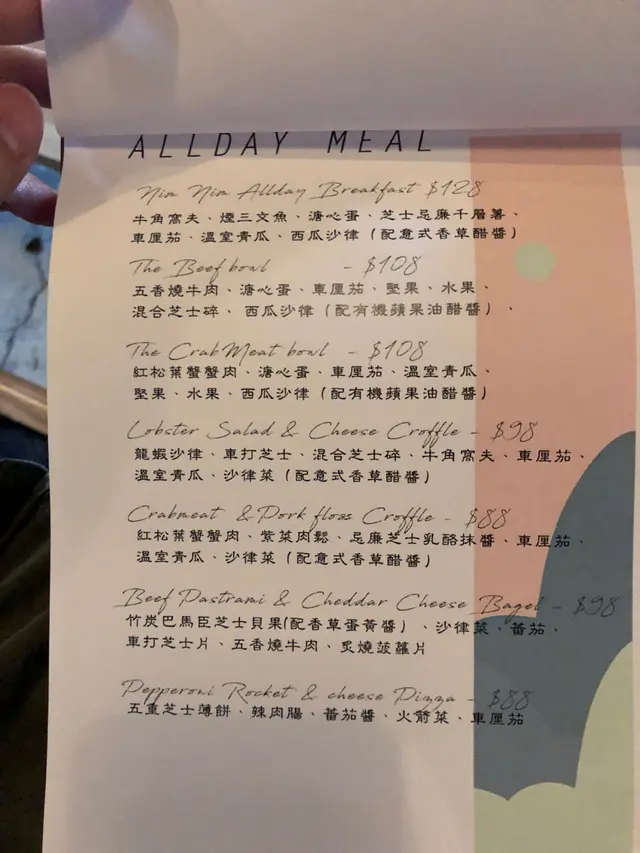 ALLDAY MEAL
Nim Nim Allday Breakfast $128
牛角窩夫、煙三文魚、溏心蛋、芝士忌廉千層薯、
車厘茄、溫室青瓜、西瓜沙律（配意式香草醋醬）
The Beef bowl - $108
五香燒牛肉、溏心蛋、車厘茄、堅果、水果、
混合芝士碎、西瓜沙律（配有機蘋果油醋醬）、
The Crab Meat bowl - $108
紅松葉蟹蟹肉、溏心蛋、車厘茄、溫室青瓜、
堅果、水果、西瓜沙律（配有機蘋果油醋醬）
Lobster Salad & Cheese Croffle - $98
龍蝦沙律、車打芝士、混合芝士碎、牛角窩夫、車厘茄、
溫室青瓜、沙律菜（配意式香草醋醬）
Crabmeat & Pork floss Croffle - $88
紅松葉蟹蟹肉、紫菜肉鬆、忌廉芝士乳酪抹醬、車厘茄、
溫室青瓜、沙律菜（配意式香草醋醬）
Beef Pastrami & Cheddar Cheese Bagel - $98
竹炭巴馬臣芝士貝果(配香草蛋黃醬）、沙律菜、蕃茄、
車打芝士片、五香燒牛肉、炙燒菠蘿片
Pepperoni Rocket & cheese Pizza - $88
五重芝士薄餅、辣肉腸、蕃茄醬、火箭菜、車厘茄